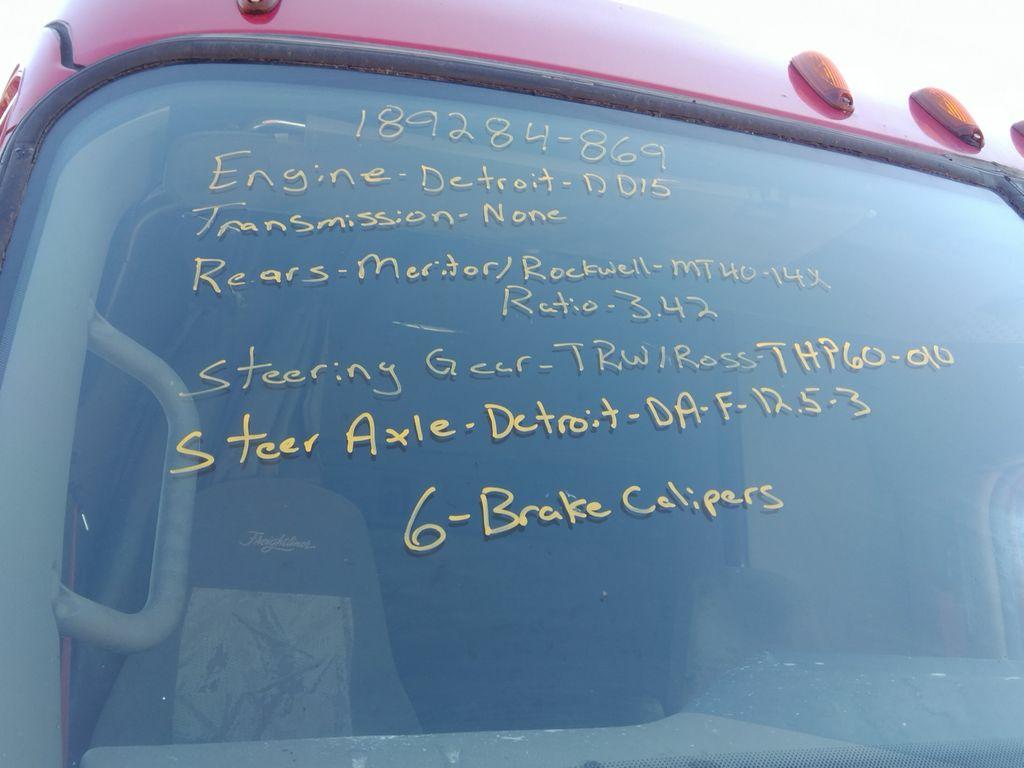 189284-869
Engine-Detroit-DD15
Transmission-None
Rears-Meritor/Rockwell-MT40-14X
Ratio-3.42
Steering Gear-TRW/Ross-THP60-010
Steer Axle-Detroit-DA-F-12.5-3
6-Brake Calipers
Freightliner